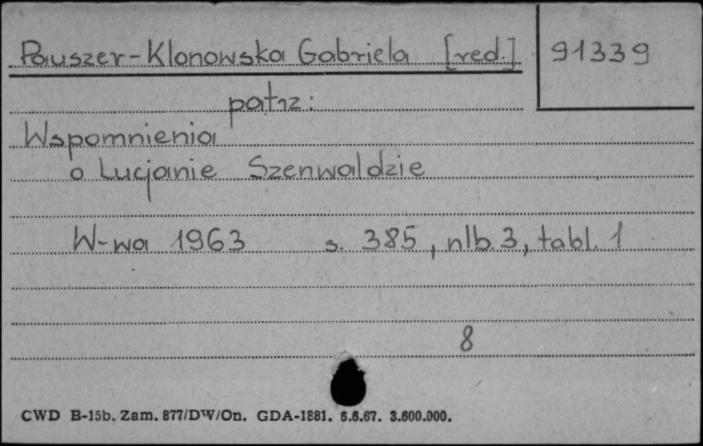 Pauszer-Klonowska Gabriela [red.] 91339
patrz:
Wspomnienia
o Lucjanie Szenwaldzie
W-wa 1963 s. 385, nlb. 3, tabl. 1
8
CWD B-15b. Zam. 877/DW/On. GDA-1881. 5.6.67. 3.600.000.